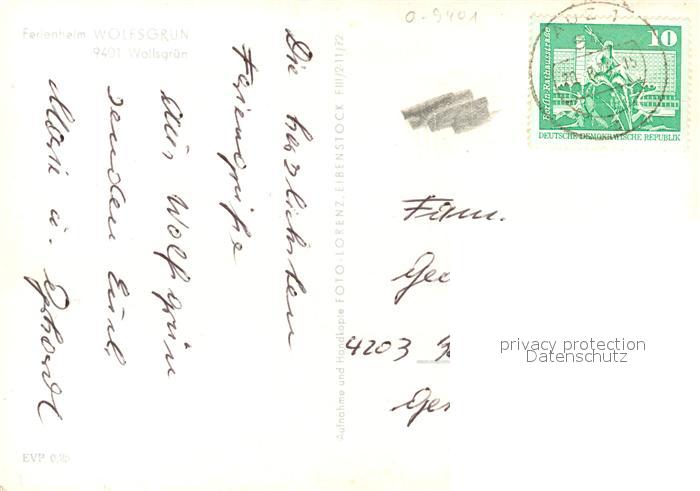 Ferienheim WOLFSGRÜN
9401 Wolfsgrün
Die herzlichsten
Feriengrüße
aus Wolfsgrün
senden Euch
u.
Aufnahme und Handkopie FOTO-LORENZ, EIBENSTOCK FIII/2-11/72
EVP 0,25
0-9401
10
Berlin-Rathausstraße
DEUTSCHE DEMOKRATISCHE REPUBLIK
Fam.
4203
privacy protection
Datenschutz